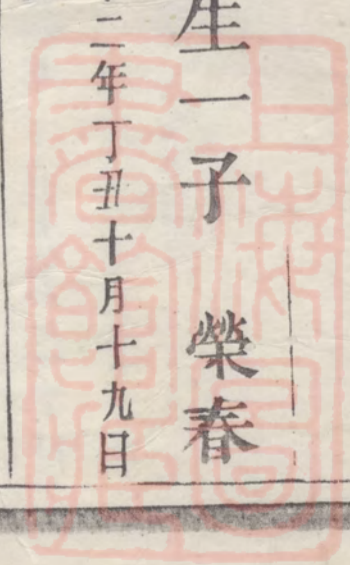 生一子 榮春
二年丁丑十月十九日